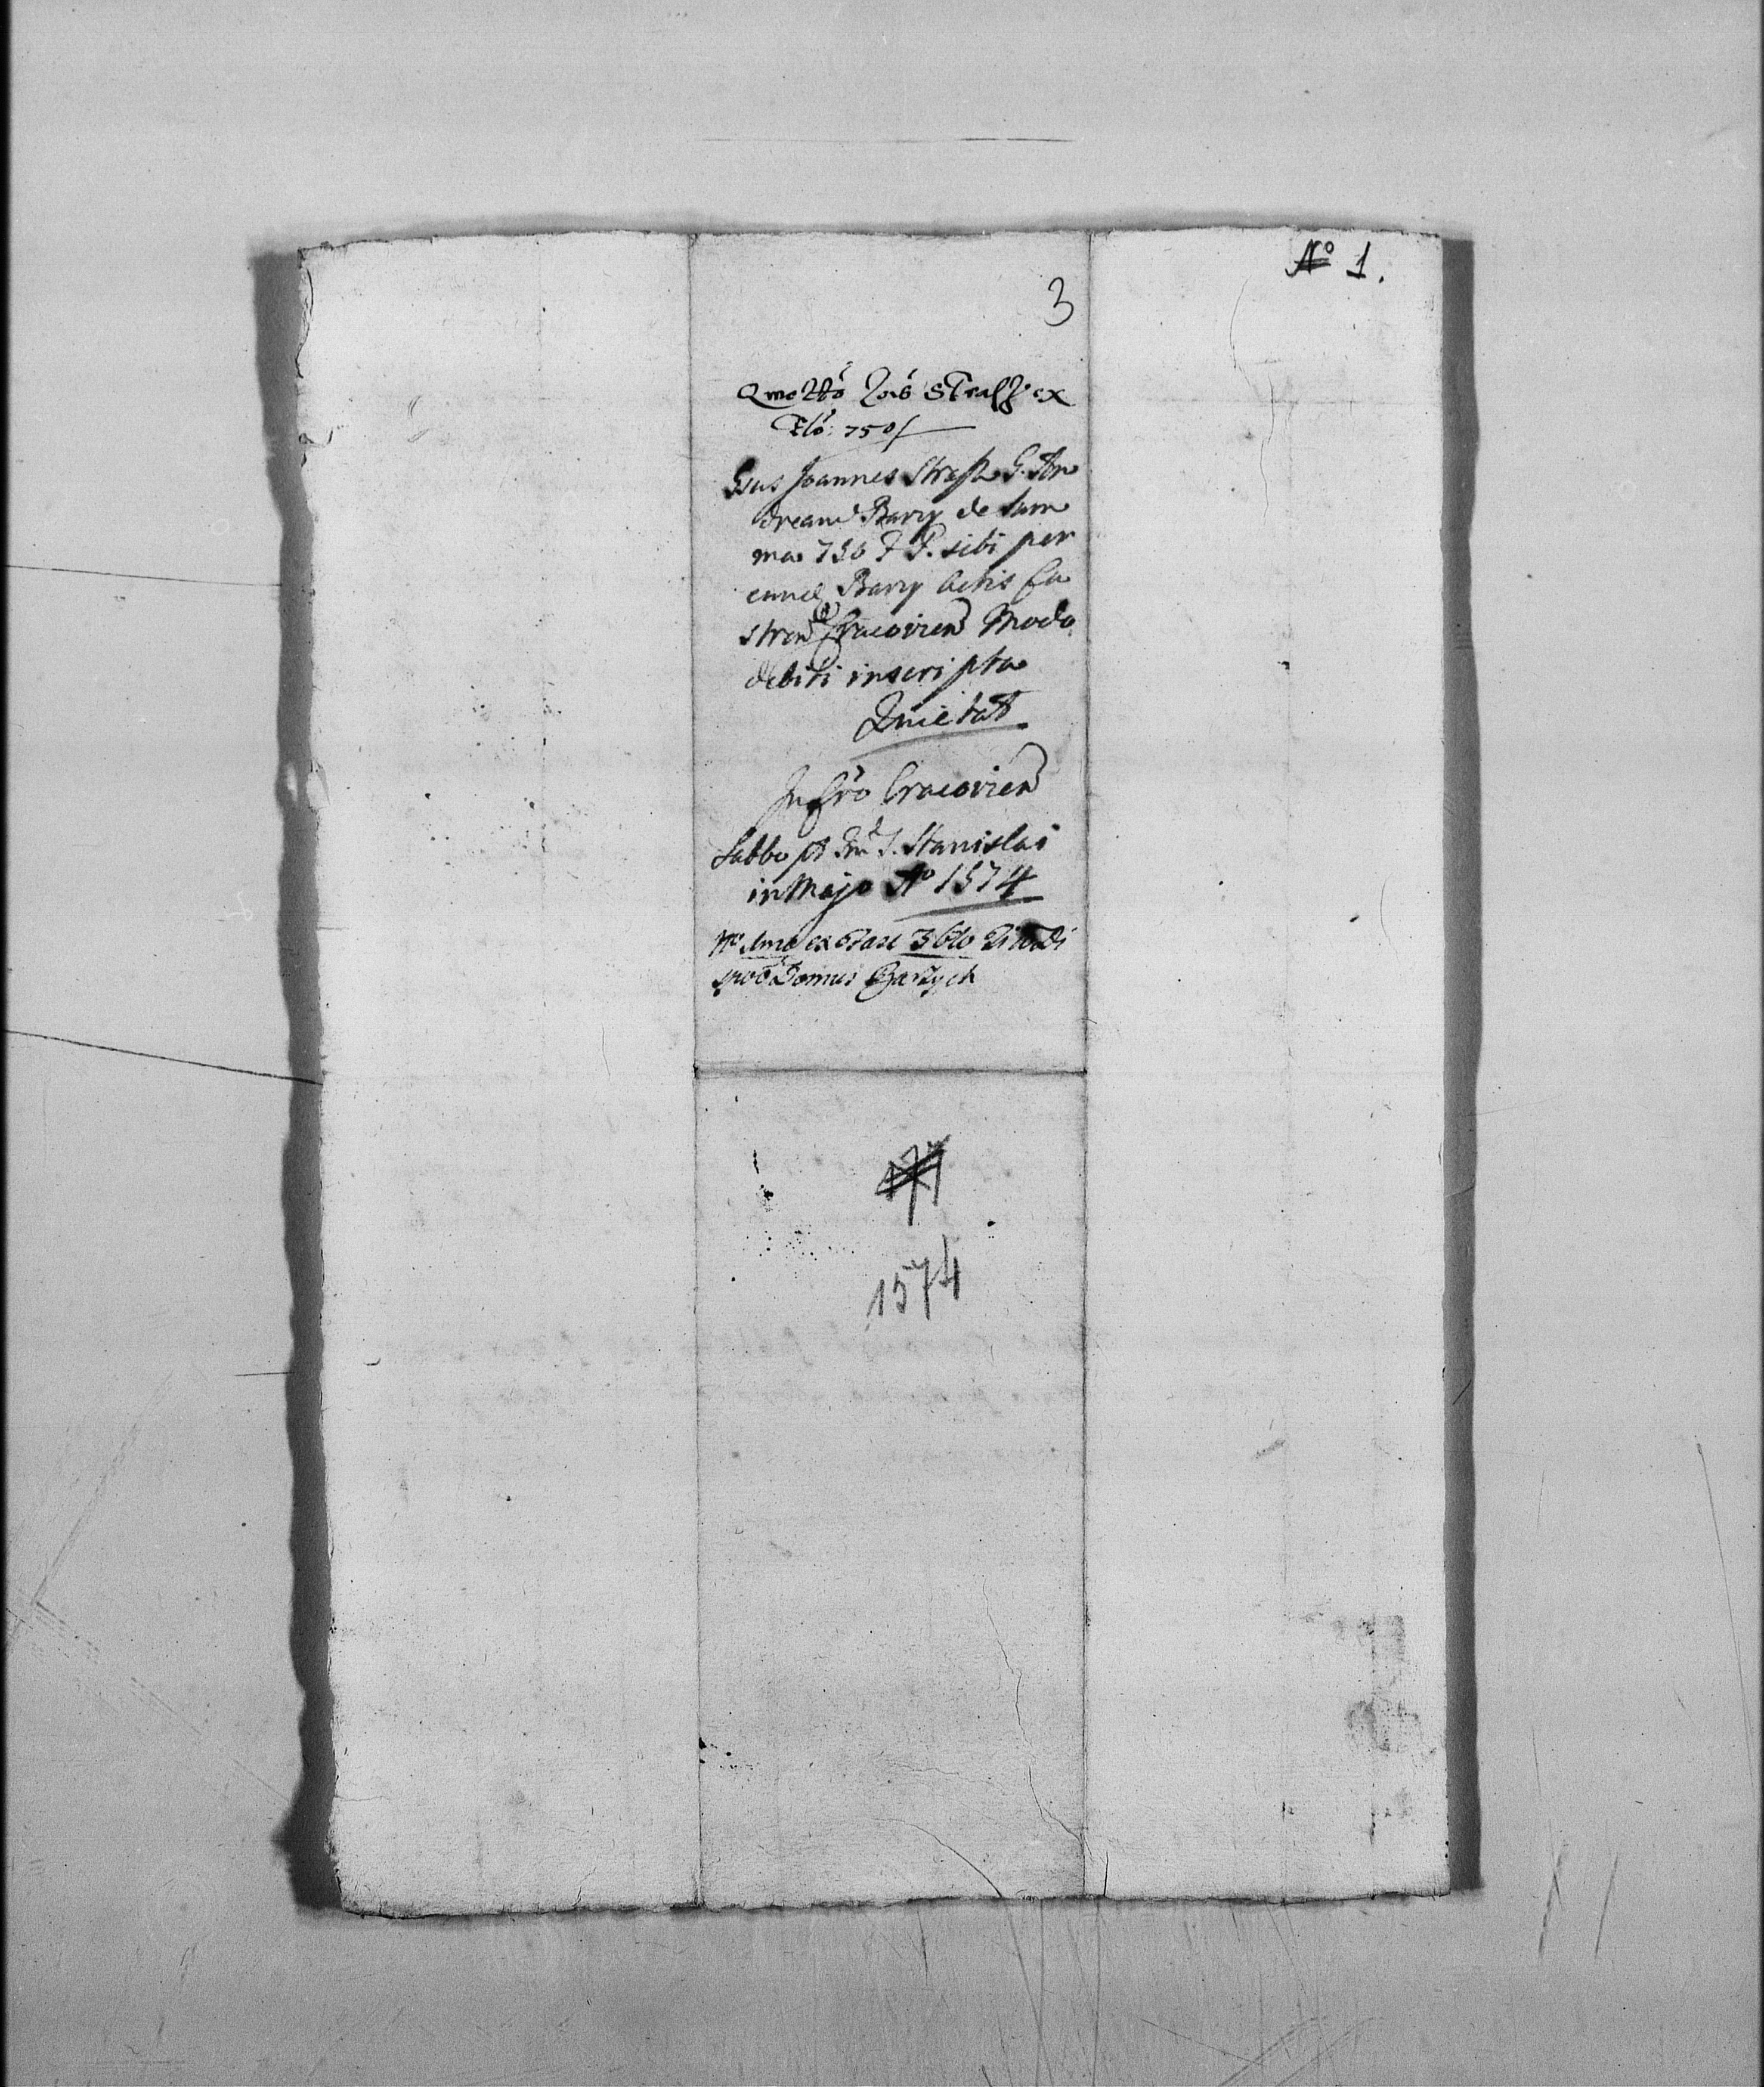 No 1.
3
ex
Flõ: 750
Gsus Joannes Strasz G. An
dream Barzy de Sum
ma 750 F P. sibi per
eund Barzy Actis Ca
stren Cracovien Modo
debiti inscripta
Quietat
In Cro Cracovien
Sabbo pt S. Stanislai
in Majo Ao 1574
No ex 3tio
Domus Barzych
1574